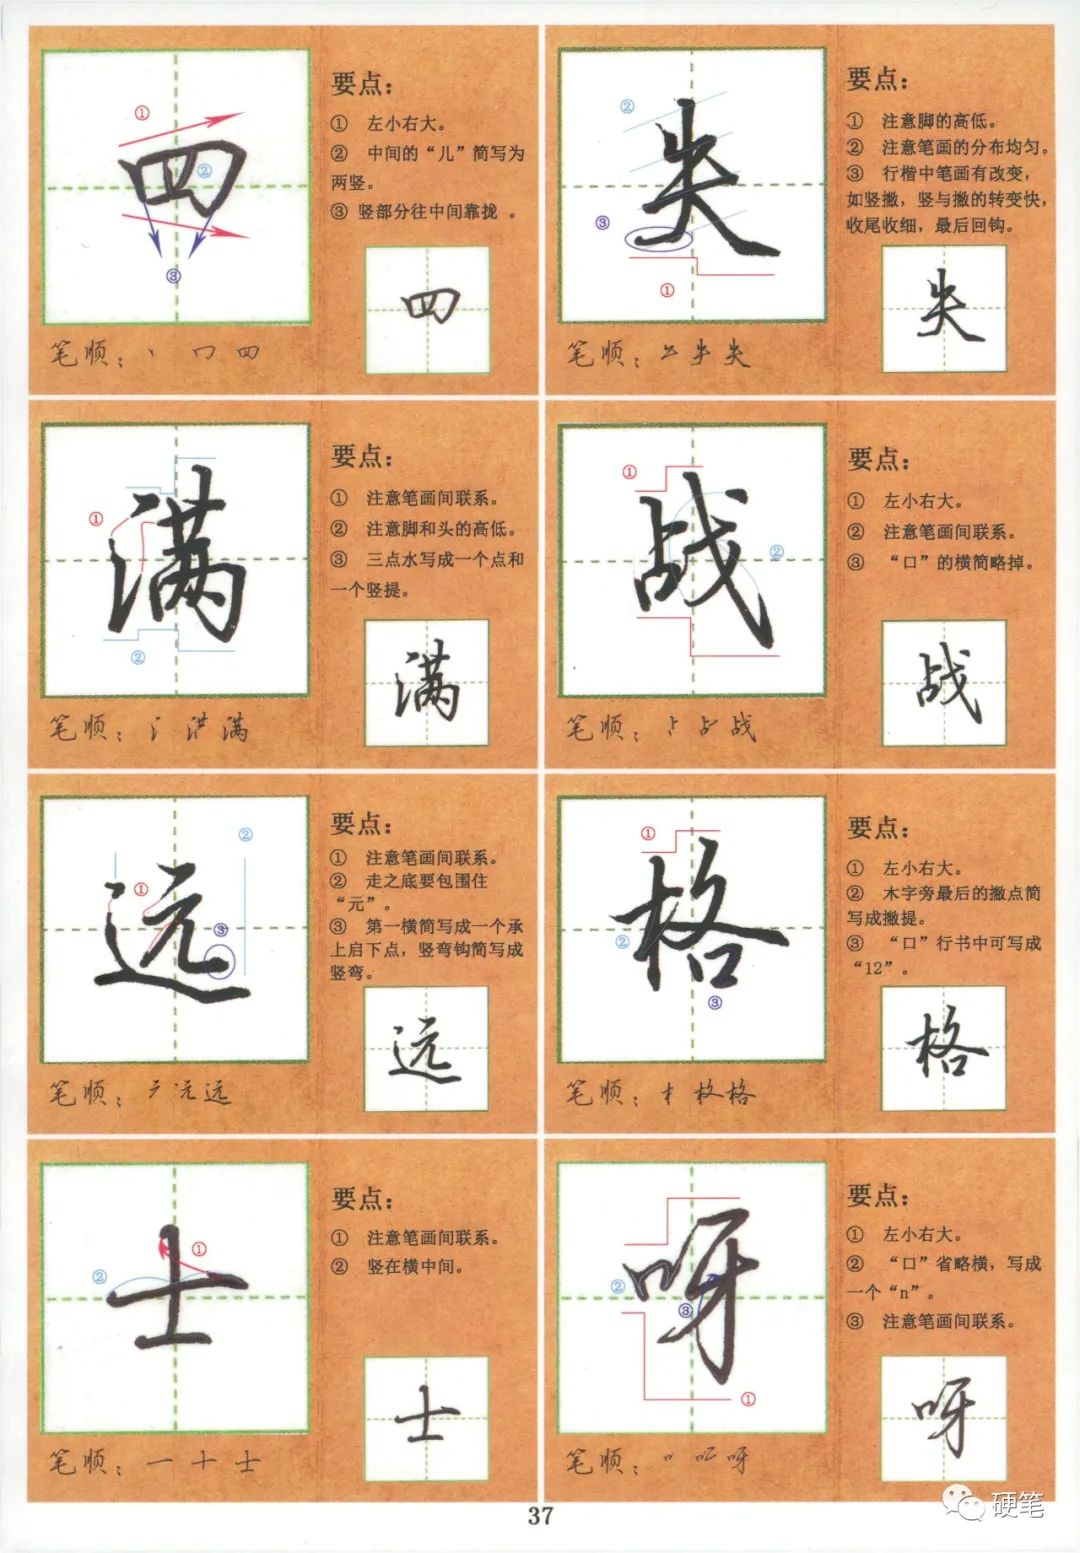 四
①
②
③
要点：
① 左小右大。
② 中间的“儿”简写为
两竖。
③ 竖部分往中间靠拢 。
四
笔顺：丶 冂 四
失
②
③
①
要点：
① 注意脚的高低。
② 注意笔画的分布均匀。
③ 行楷中笔画有改变，
如竖撇，竖与撇的转变快，
收尾收细，最后回钩。
失
笔顺： 失
满
①
②
要点：
① 注意笔画间联系。
② 注意脚和头的高低。
③ 三点水写成一个点和
一个竖提。
满
笔顺：氵 满
战
①
②
要点：
① 左小右大。
② 注意笔画间联系。
③ “口”的横简略掉。
战
笔顺：⺊ 占 战
远
①
②
③
要点：
① 注意笔画间联系。
② 走之底要包围住
“元”。
③ 第一横简写成一个承
上启下点，竖弯钩简写成
竖弯。
远
笔顺： 元 远
格
①
②
③
要点：
① 左小右大。
② 木字旁最后的撇点简
写成撇提。
③ “口”行书中可写成
“12”。
格
笔顺： 格
士
①
②
要点：
① 注意笔画间联系。
② 竖在横中间。
士
笔顺：一 十 士
呀
②
③
①
要点：
① 左小右大。
② “口”省略横，写成
一个“n”。
③ 注意笔画间联系。
呀
笔顺： 呀
37
硬笔